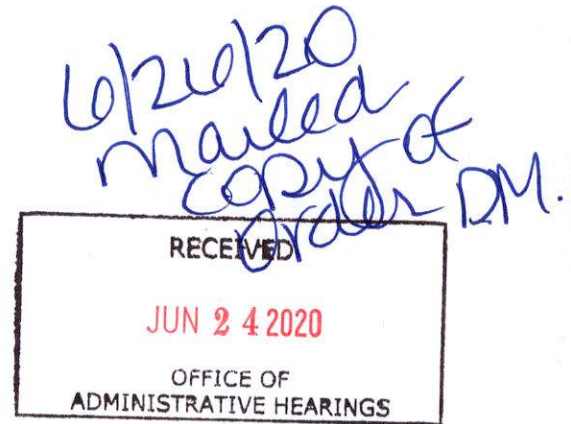 6/26/20
mailed
copy of
order DM.
RECEIVED
JUN 24 2020
OFFICE OF
ADMINISTRATIVE HEARINGS